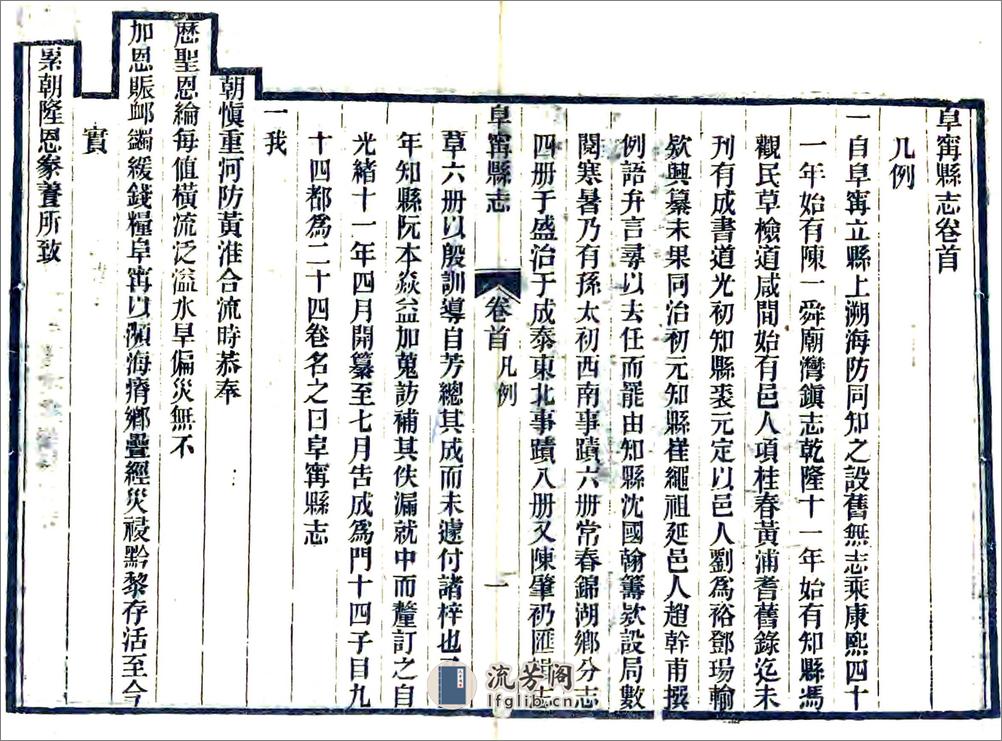 阜寗縣志卷首
凡例
一自阜寗立縣上溯海防同知之設舊無志乘康熙四十
一年始有陳一舜廟灣鎮志乾隆十一年始有知縣馮
觀民草檢道咸間始有邑人項桂春黃浦耆舊錄迄未
刊有成書道光初知縣裘元定以邑人劉為裕鄧瑒輸
欵興纂未果同治初元知縣崔繩祖延邑人趙幹甫撰
例語弁言尋以去任而罷由知縣沈國翰籌欵設局數
閱寒暑乃有孫太初西南事蹟六册常春錦湖鄉分志
四册于盛治于成泰東北事蹟八册又陳肇礽匯輯志
阜寗縣志
卷首 凡例
一
草六册以殷訓導自芳總其成而未遽付諸梓也
年知縣阮本焱益加蒐訪補其佚漏就中而釐訂之自
光緒十一年四月開纂至七月告成爲門十四子目九
十四都爲二十四卷名之曰阜寗縣志
一我
朝愼重河防黃淮合流時恭奉
歷聖恩綸每值橫流泛溢水旱偏災無不
加恩賑䘏蠲緩錢糧阜寗以瀕海瘠鄉疊經災祲黔黎存活至今
實
累朝隆恩豢養所致
流芳阁
lfglib.cn